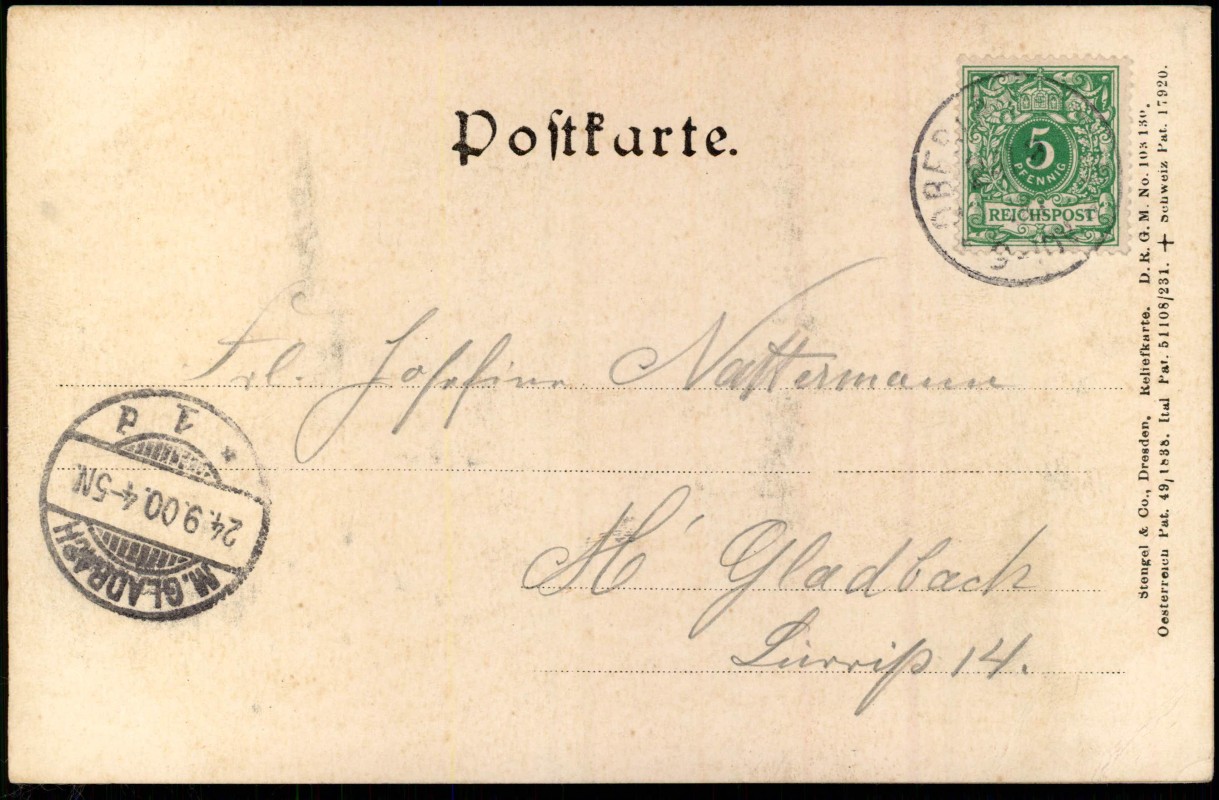 Postkarte.
5
PFENNIG
REICHSPOST
Frl. Josefine Nattermann
M' Gladbach
Lürrip 14.
M. GLADBACH
24.9.00. 4-5N.
1 d
Stengel & Co., Dresden. Reliefkarte. D. R. G. M. No. 103 130.
Oesterreich Pat. 49/1838. Ital Pat. 51108/231. + Schweiz Pat. 17920.